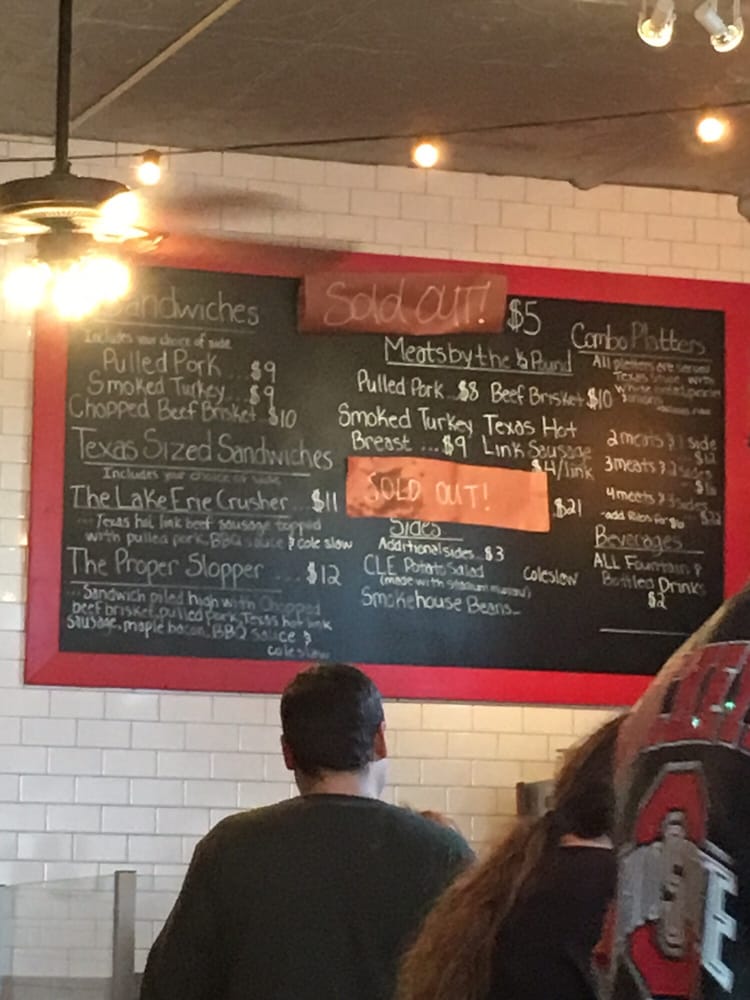 Sandwiches
Includes your choice of side
Pulled Pork ... $9
Smoked Turkey ... $9
Chopped Beef Brisket .. $10
Texas Sized Sandwiches
Includes your choice of side
The Lake Erie Crusher ... $11
... Texas hot link beef sausage topped
with pulled pork, BBQ sauce & cole slaw
The Proper Slopper .... $12
... Sandwich piled high with Chopped
beef brisket, pulled Pork, Texas hot link
sausage, maple bacon, BBQ sauce &
coleslaw
Sold OUT! $5
Meats by the ½ Pound
Pulled Pork .. $8 Beef Brisket . $10
Smoked Turkey Texas Hot
Breast ... $9 Link Sausage
$4/link
SOLD OUT! $21
Sides
Additional sides .. $3
CLE Potato Salad coleslaw
(made with stadium mustard)
Smokehouse Beans..
Combo Platters
All platters are served
Texas with
2 meats & 1 side
3 meats & 2 sides
4 meats & sides
-add Ribs for $6
Beverages
ALL Fountain &
Bottled Drinks
$2